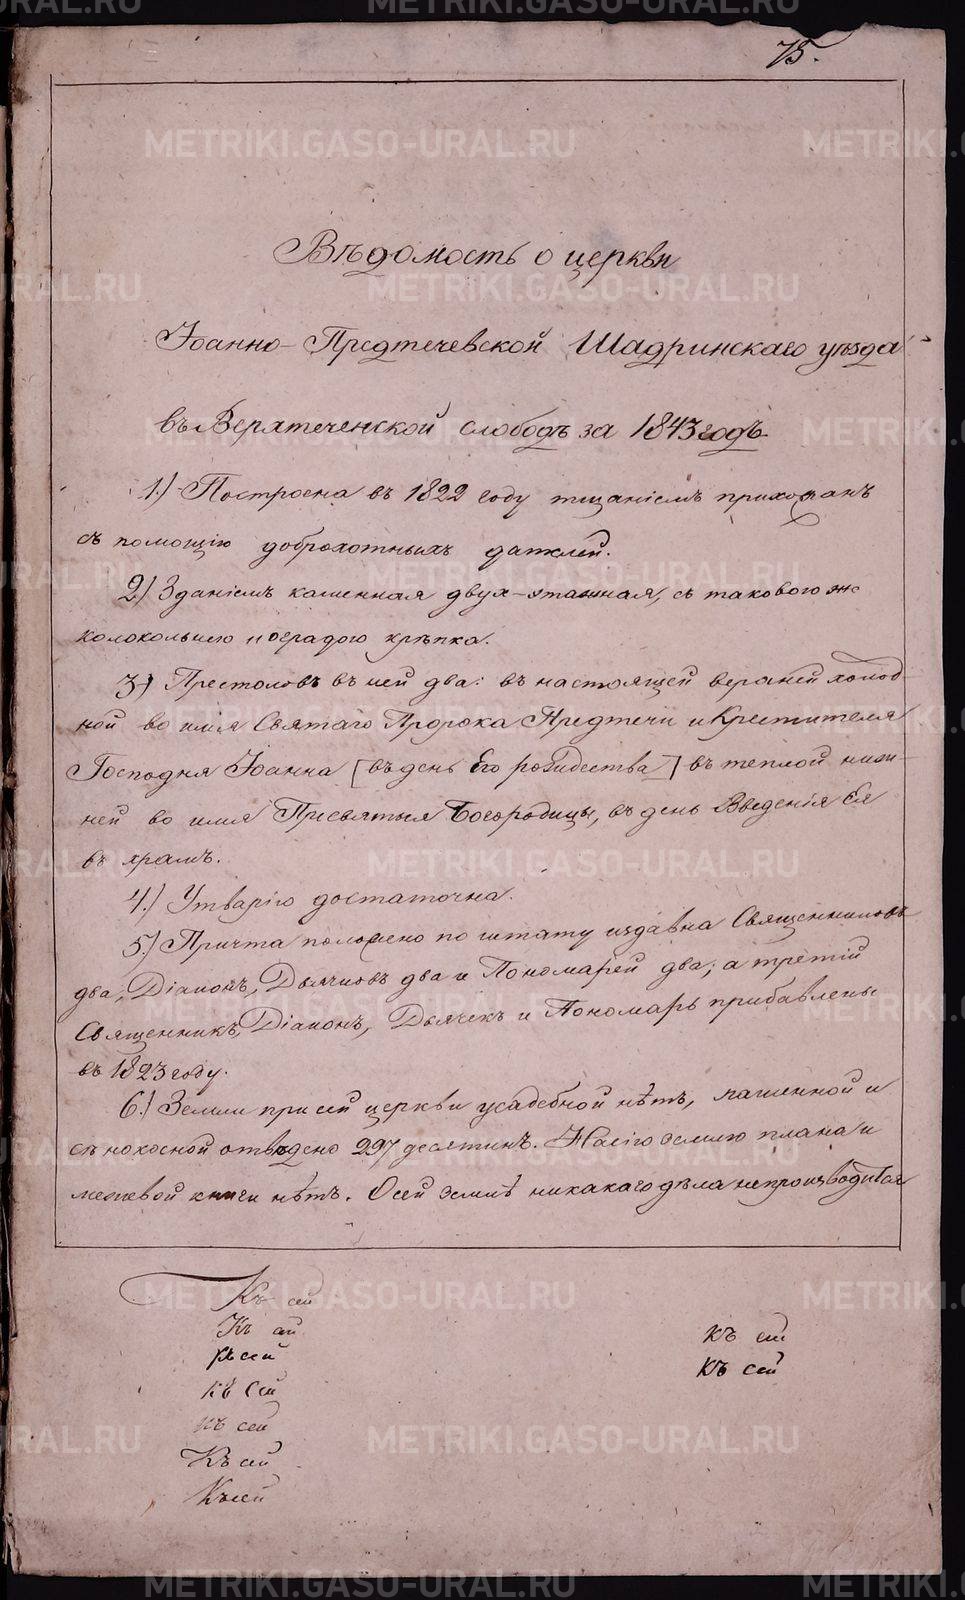 75.
Вѣдомость о церкви
Іоанно-Предтечевской Шадринскаго уѣзда
въ Верхтеченской слободѣ за 1843 годъ
1.) Построена въ 1822 году тщаніемъ прихожанъ
съ помощію доброхотныхъ дателей.
2.) Зданіемъ каменная двух-этажная, съ таковою же
колокольнею и оградою крѣпка.
3.) Престоловъ въ ней два: въ настоящей верхней холод-
ной во имя Святаго Пророка Предтечи и Крестителя
Господня Іоанна [въ день Его рождества] въ теплой ниж-
ней во имя Пресвятыя Богородицы, въ день Введенія Ея
въ храмъ.
4.) Утварію достаточна.
5.) Причта положено по штату издавна Священниковъ
два, Діаконъ, Дьячковъ два и Пономарей два; а третій
Священникъ, Діаконъ, Дьячекъ и Пономарь прибавлены
въ 1823 году.
6.) Земли при сей церкви усадебной нѣтъ, пашенной и
сѣнокосной отведено 297 десятинъ. На сію землю плана и
межевой книги нѣтъ. О сей землѣ никакаго дѣла непроизводится
Къ сей
Къ сей
къ сей
къ сей
къ сей
къ сей
къ сей
Къ сей
Къ сей
METRIKI.GASO-URAL.RU